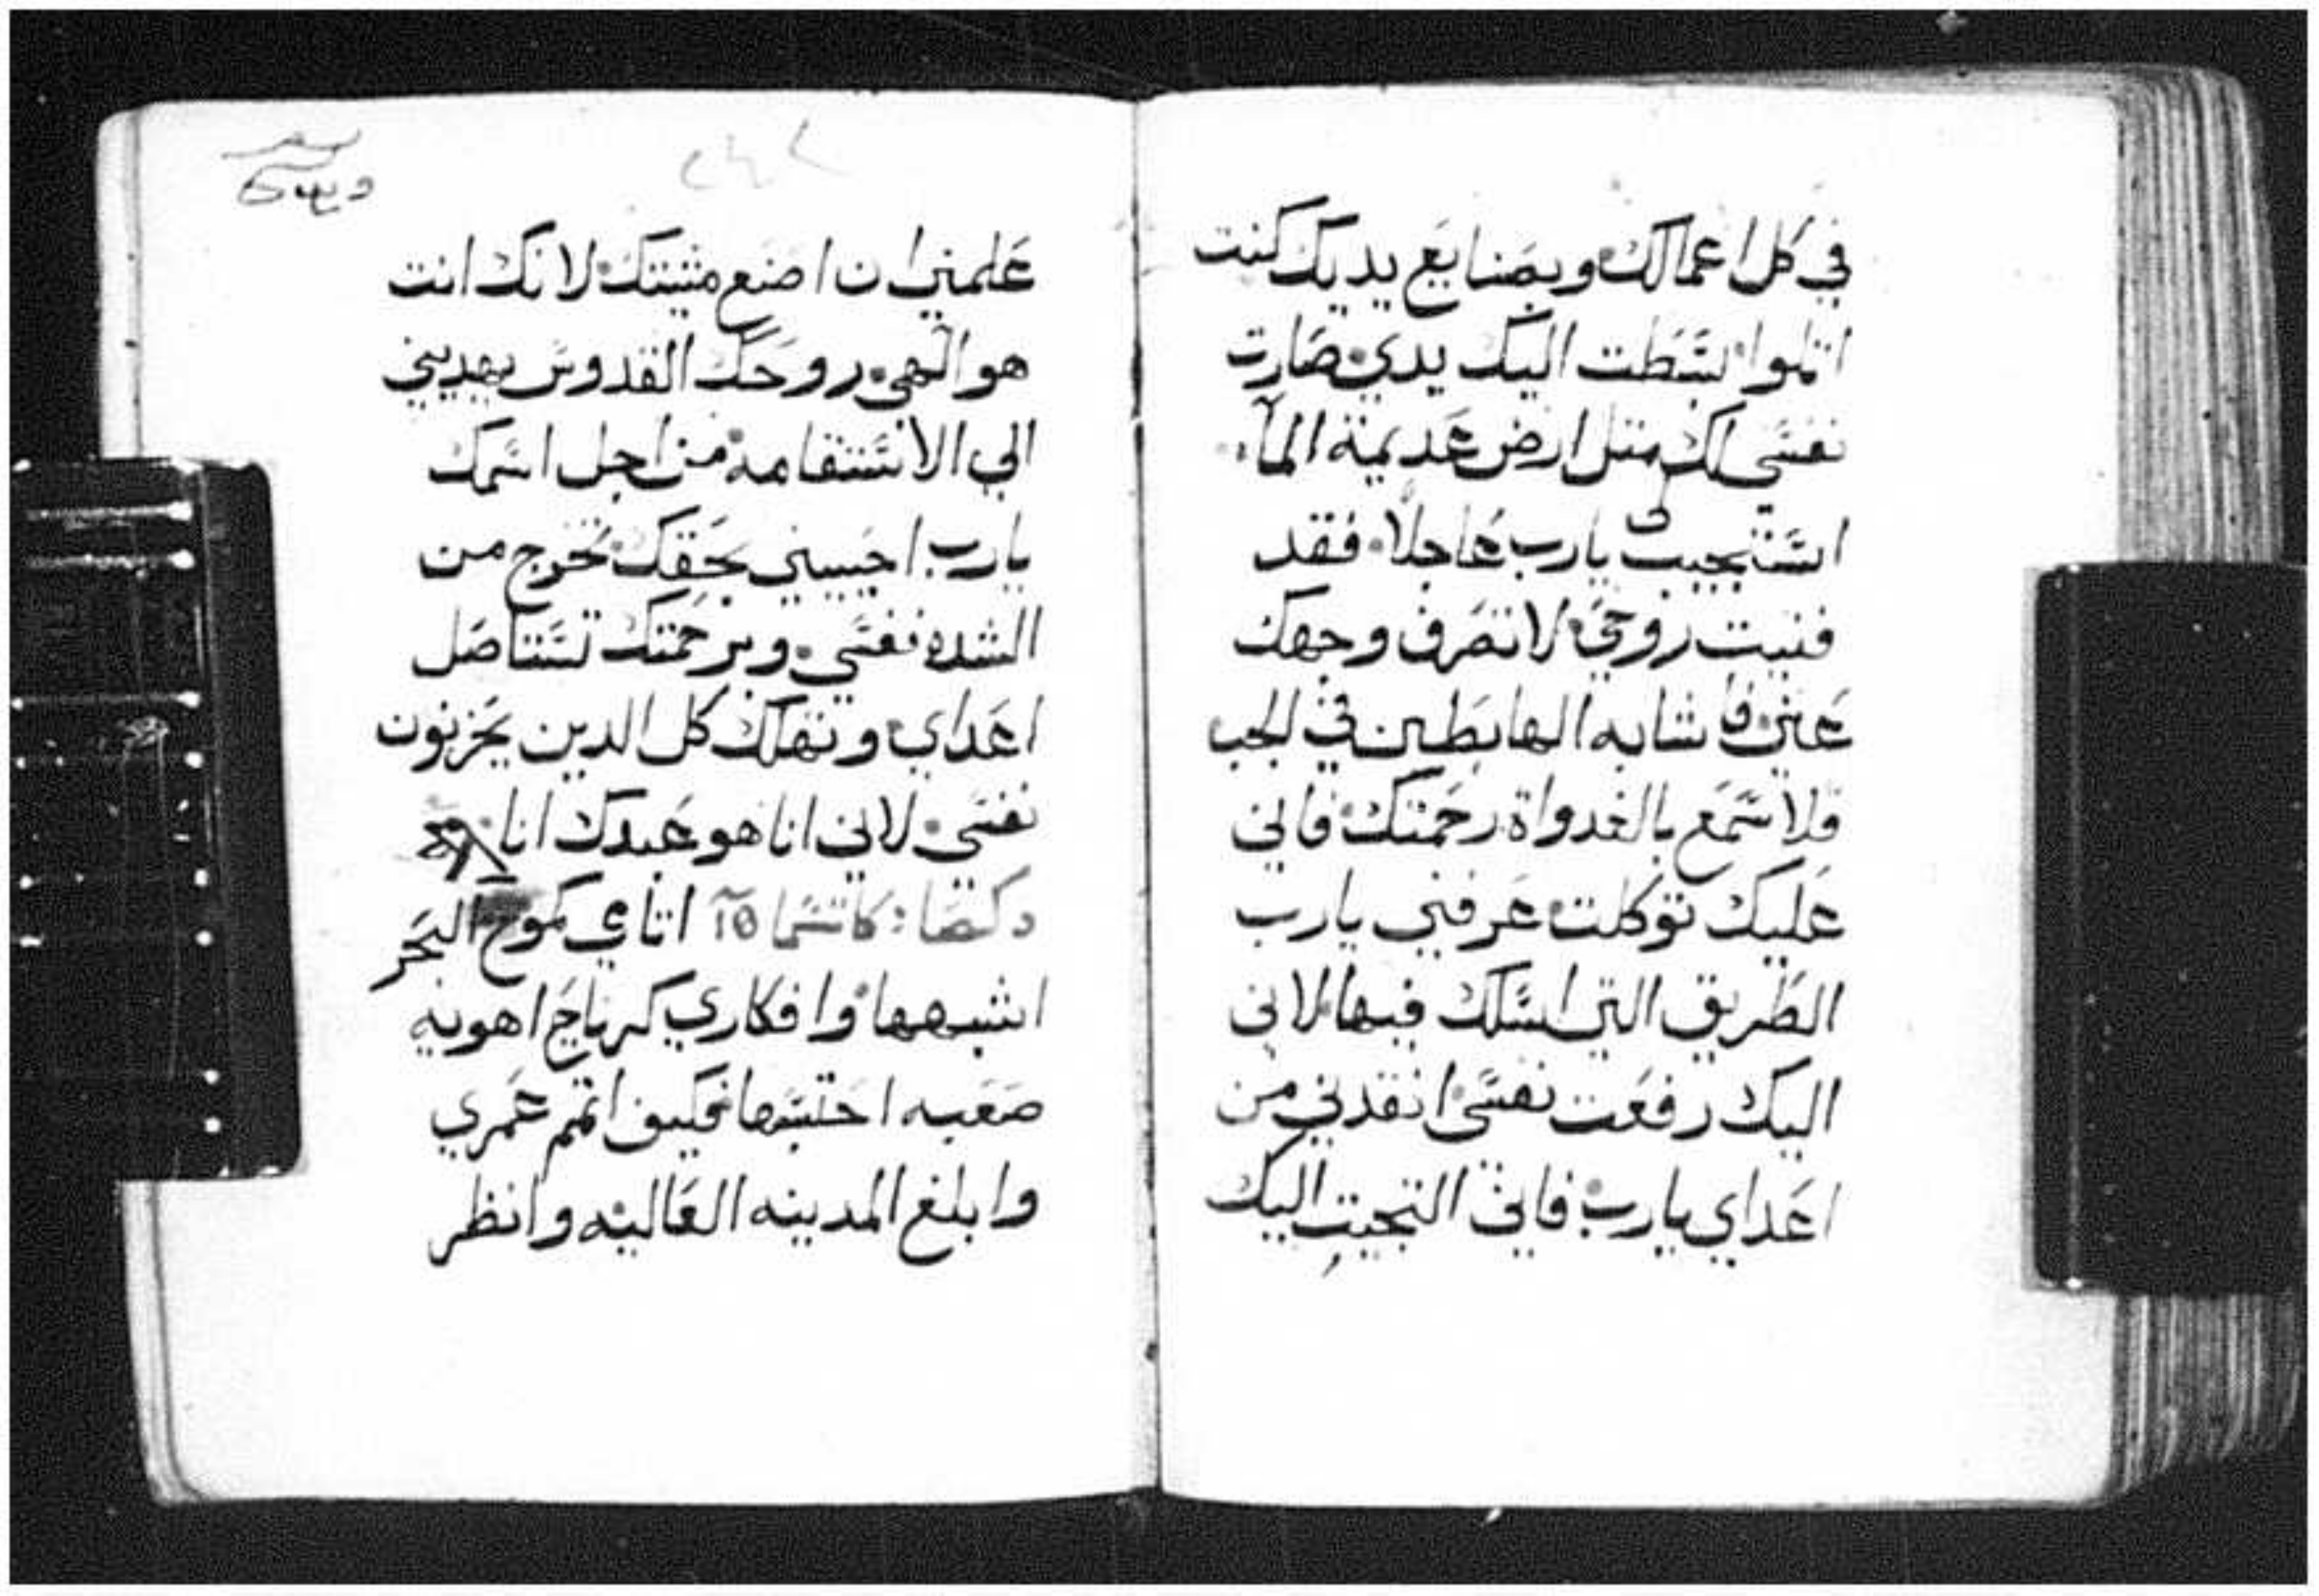 في كل اعمالك وبصنايع يديك كنت
اتلوا بسطت اليك يدي صارت
نفسي لك متل ارض عديمة المآ
استجيب يارب عاجلاً فقد
فنيت روحي لا تصرف وجهك
عني فاشابه الهابطين في الجب
فلاسمع بالغدواة رحمتك فاني
عليك توكلت عرفني يارب
الطريق التي اسلك فيها لاني
اليك رفعت نفسي انقدني من
اعداي يارب فاني التجيت اليك
علمني ان اصنع مشيتك لانك انت
هو الهي روحك القدوس يهديني
الي الاستقامه من اجل اسمك
يارب احييني بحقك تخرج من
الشده نفسي وبرحمتك تستاصل
اعداي وتهلك كل الدين يحزنون
نفسي لاني انا هو عبدك انا
دكصا: كاتسما اتامي كموج البحر
اشبهها وافكاري كرياح اهويه
صعبه احتسبها فكيف اتمم عمري
وابلغ المدينه العاليه وانظر